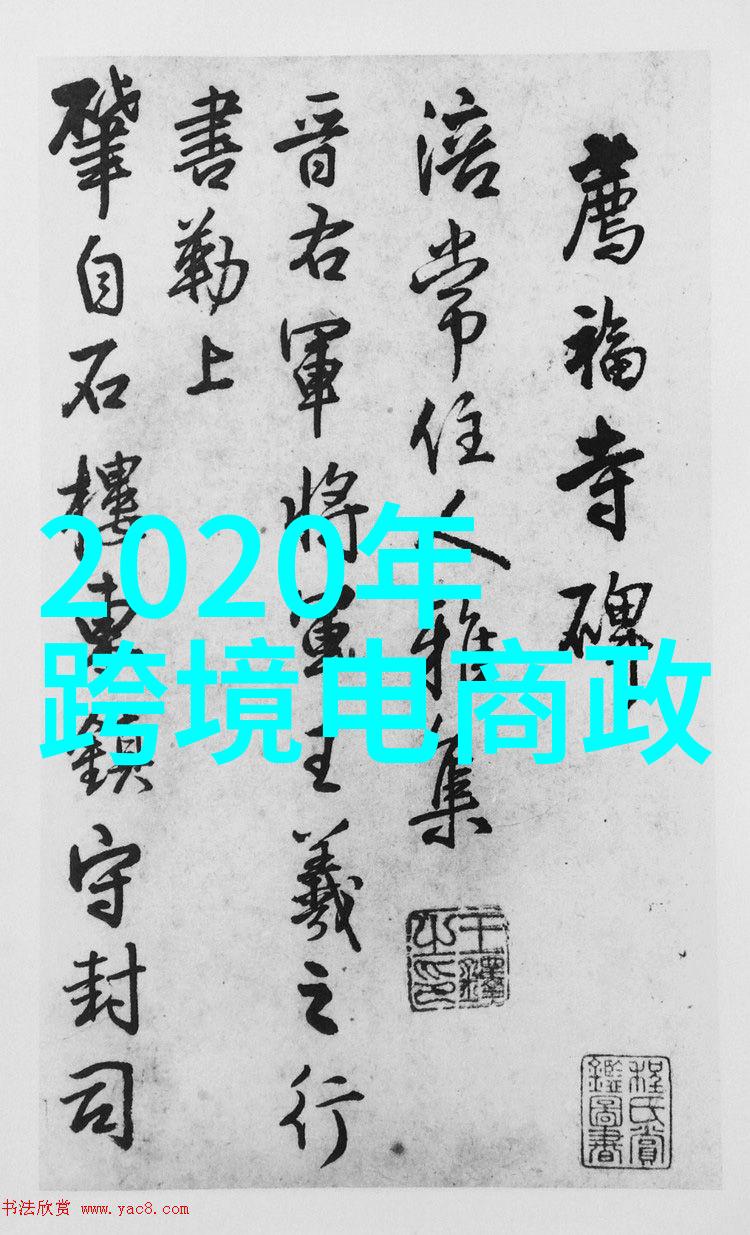 薦福寺碑
涪常住人雅集
晋右軍將軍王羲之行
書勒上
肇自石樓東鎮守封司
王鐸之印
程氏賞鑑圖書
2020年
跨境电商政
书法欣赏 www.yac8.com